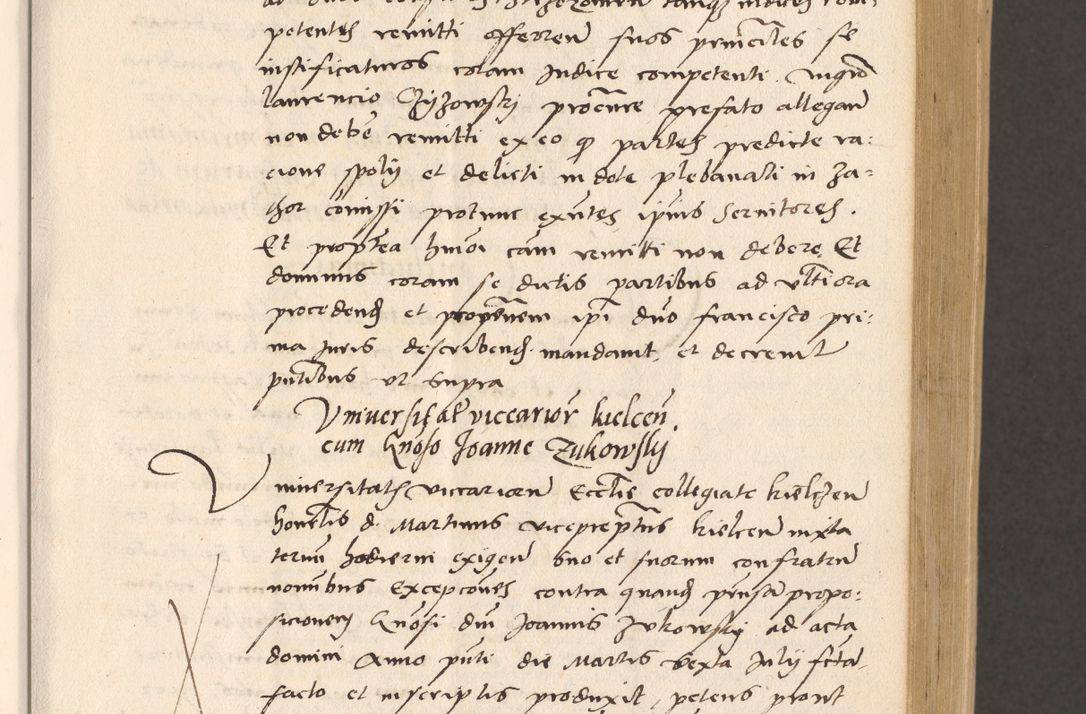 petentes remitti offerren suos principales se
iustificaturos coram Judice competenti. Magro
laurencio Czyzowski procure prefato allegan
non debere remitti ex eo q partes predicte ra:
cione spolij et delicti in dote plebanali in Za=
thor comissi protunc exntes ipius Servitores.
Et proptea hmoi cam remitti non debere, Et
dominus coram se dictis partibus ad vlteriora
procedend et proponenem ipi dno francisco pri:
ma Juris describend mandavit, et decrevit
pntibus vt supra
Universitat viccarior kielcen.
cum Gnoso Joanne Zukowskij
Universitatis viccariorum Eccliae collegiate kielczen
honestis d. Martinus viceprepitus kielcen iuxta
termi hodierni exigen suo et suorum confratru
nominibus Exceptiones contra quand pensa propo:
sicionem Gnosi dni Joannis Zukowsky ad acta
domini Anno pnti die Martis Sexta Julij fcta
facto et inscriptis produxit, petens prout